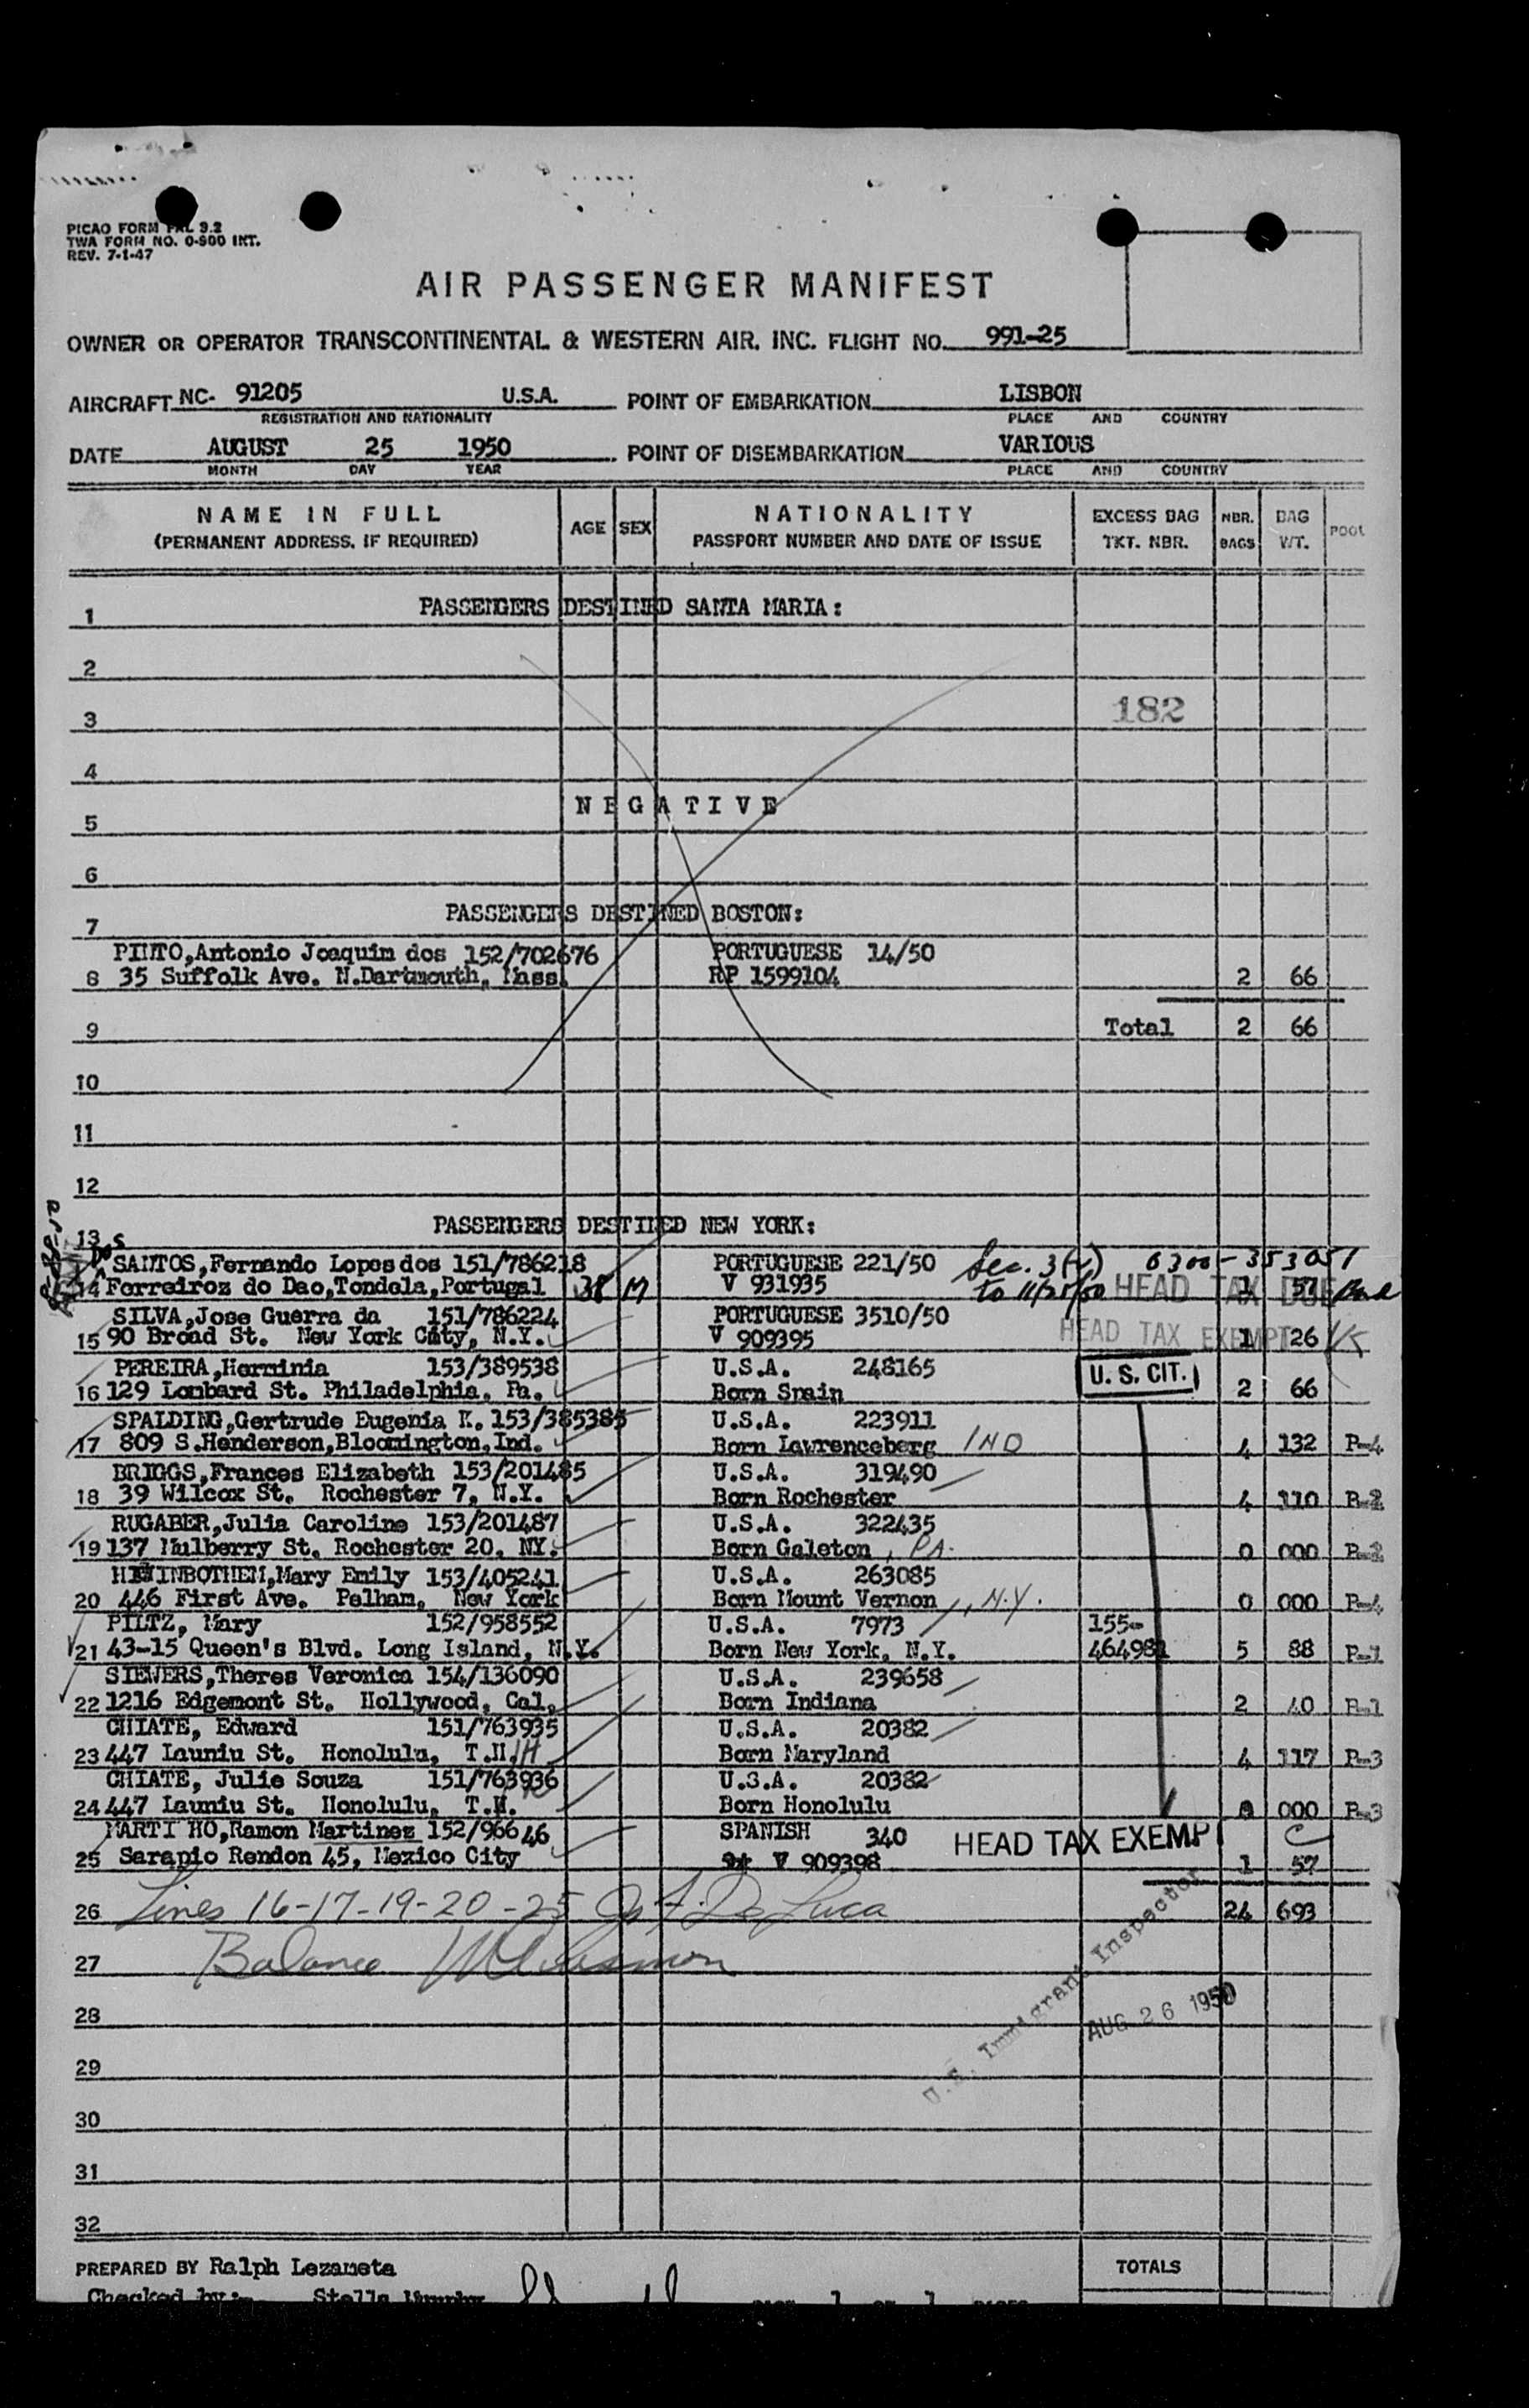 PICAO FORM PAL 9.2
TWA FORM NO. 0-900 INT.
REV. 7-1-47
AIR PASSENGER MANIFEST
OWNER OR OPERATOR TRANSCONTINENTAL & WESTERN AIR. INC. FLIGHT NO. 991-25
AIRCRAFT NC- 91205 U.S.A. POINT OF EMBARKATION LISBON
REGISTRATION AND NATIONALITY PLACE AND COUNTRY
DATE AUGUST 25 1950 POINT OF DISEMBARKATION VARIOUS
MONTH DAY YEAR PLACE AND COUNTRY
NAME IN FULL AGE SEX NATIONALITY EXCESS BAG NBR. BAG POOL
(PERMANENT ADDRESS, IF REQUIRED) PASSPORT NUMBER AND DATE OF ISSUE TKT. NBR. BAGS WT.
1 PASSENGERS DESTINED SANTA MARIA:
2
3 182
4
5 NEGATIVE
6
7 PASSENGERS DESTINED BOSTON:
PINTO,Antonio Joaquim dos 152/702676 PORTUGUESE 14/50
8 35 Suffolk Ave. N.Dartmouth, Mass. RP 1599104 2 66
9 Total 2 66
10
11
12
13 PASSENGERS DESTINED NEW YORK:
dos
SANTOS,Fernando Lopes dos 151/786218 PORTUGUESE 221/50 Sec. 3(2) 6300-353051
14 Ferreiroz do Dao,Tondela,Portugal 38 M V 931935 to 11/25/50 HEAD TAX DUE 1 57
SILVA,Jose Guerra da 151/786224 PORTUGUESE 3510/50
15 90 Broad St. New York City, N.Y. V 909395 HEAD TAX EXEMPT 1 26
PEREIRA,Herminia 153/389538 U.S.A. 248165 U. S. CIT.
16 129 Lombard St. Philadelphia, Pa. Born Spain 2 66
SPALDING,Gertrude Eugenia K. 153/385385 U.S.A. 223911
17 809 S.Henderson,Bloomington,Ind. Born Lawrenceberg IND 4 132 P-4
BRIGGS,Frances Elizabeth 153/201485 U.S.A. 319490
18 39 Wilcox St. Rochester 7, N.Y. Born Rochester 4 110 P-2
RUGABER,Julia Caroline 153/201487 U.S.A. 322435
19 137 Mulberry St. Rochester 20, NY. Born Galeton, PA. 0 000 P-2
HIGINBOTHEM,Mary Emily 153/405241 U.S.A. 263085
20 446 First Ave. Pelham, New York Born Mount Vernon, N.Y. 0 000 P-4
PILTZ, Mary 152/958552 U.S.A. 7973 155-
21 43-15 Queen's Blvd. Long Island, N.Y. Born New York, N.Y. 464981 5 88 P-1
SIEWERS,Theres Veronica 154/136090 U.S.A. 239658
22 1216 Edgemont St. Hollywood, Cal. Born Indiana 2 40 P-1
CHIATE, Edward 151/763935 U.S.A. 20382
23 447 Launiu St. Honolulu, T.H. Born Maryland 4 117 P-3
CHIATE, Julie Souza 151/763936 U.S.A. 20382
24 447 Launiu St. Honolulu, T.H. Born Honolulu 0 000 P-3
MARTI HO,Ramon Martinez 152/96646 SPANISH 340 HEAD TAX EXEMP
25 Sarapio Rendon 45, Mexico City V 909398 1 57
26 Lines 16-17-19-20-25 De Luca 24 693
27 Balance
U.S. Immigrant Inspector
AUG 26 1950
28
29
30
31
32
PREPARED BY Ralph Lezameta TOTALS
Checked by:- Stella Murphy